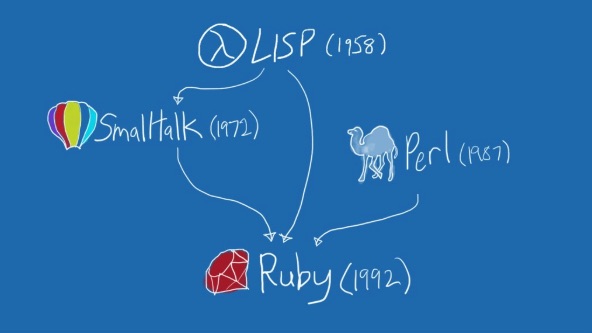 λ LISP (1958)
Smalltalk (1972)
Perl (1987)
Ruby (1992)